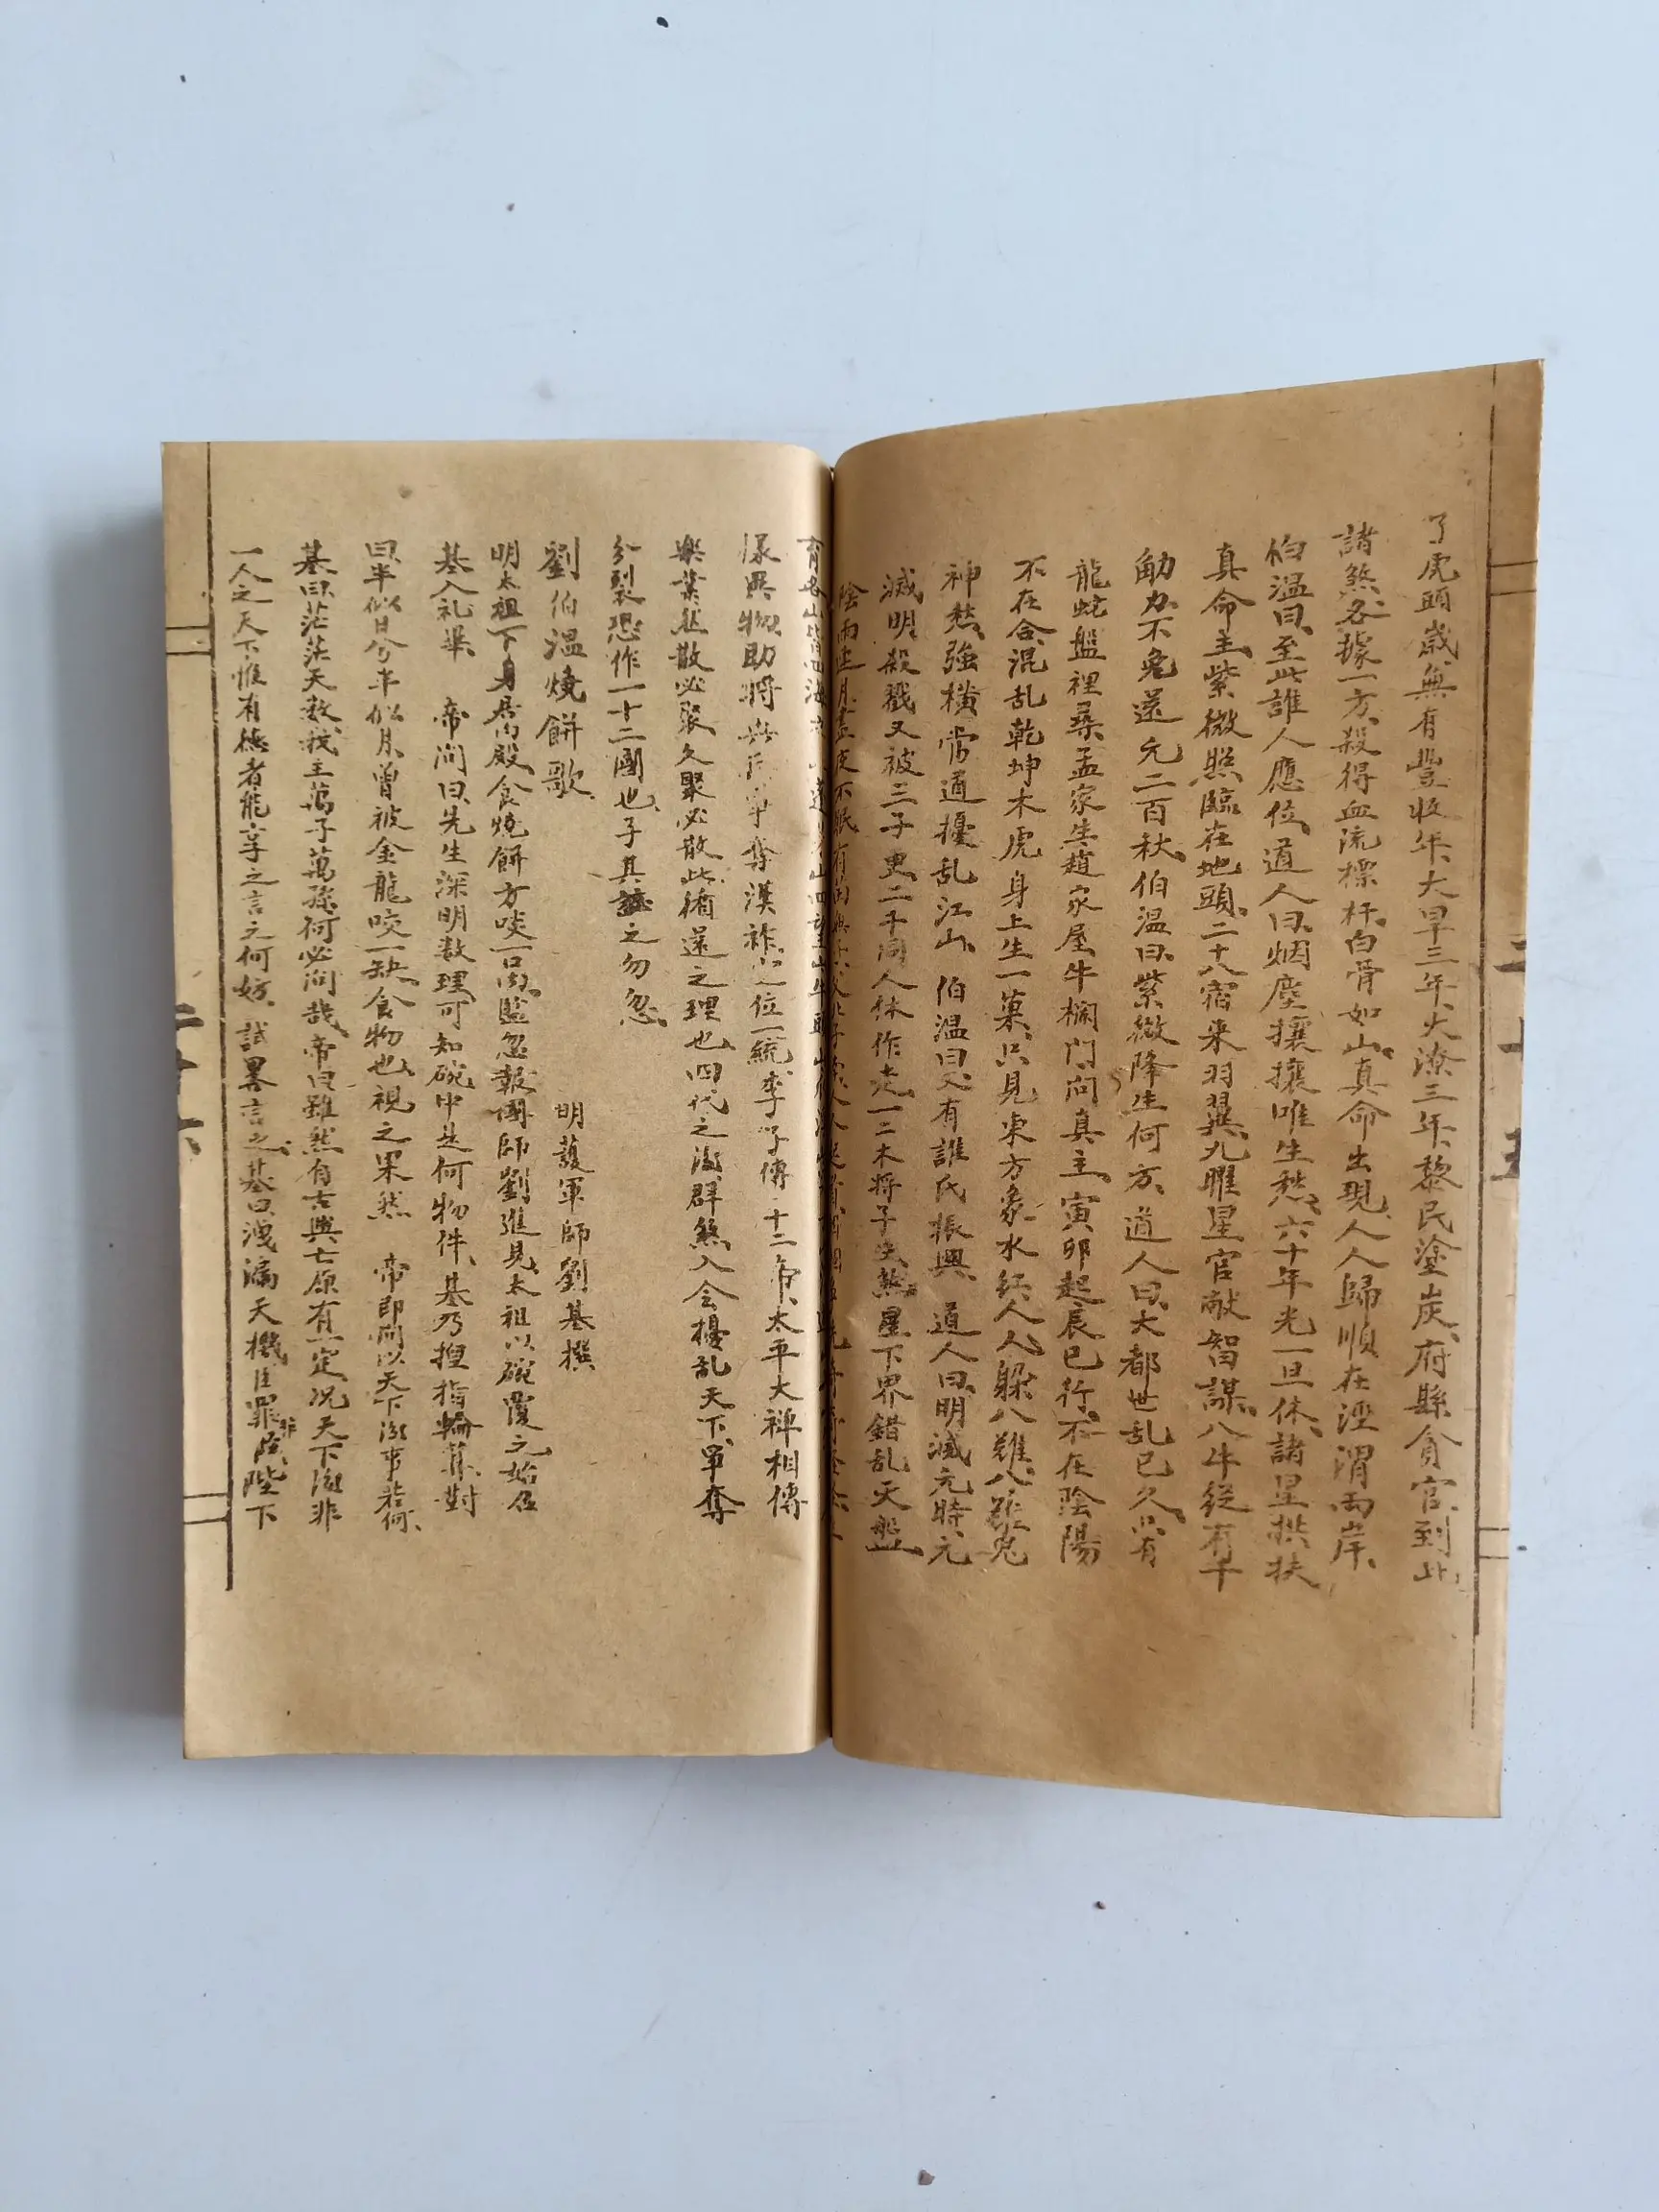 了虎頭歲、無有豐收年、大旱三年、大潦三年、黎民塗炭、府縣貪官、到此
諸煞各據一方、殺得血流標杆、白骨如山、真命出現、人人歸順在涇渭兩岸、
伯温曰、至此誰人應位、道人曰、烟塵攘攘唯生愁、六十年光一旦休、諸星拱扶
真命主、紫微照臨在地頭、二十八宿来羽翼、九曜星官献智謀、八牛縱有千
觔力、不免還元二百秋、伯温曰、紫微降生何方、道人曰、大都世乱已久、只有
龍蛇盤裡尋、孟家生、趙家屋、牛欄門、問真主、寅卯起、辰巳行、不在陰陽
不在合、混乱乾坤木虎身上生一菓、只見東方象水紅、人人躲八難、八難鬼
神愁、強横常道擾乱江山、伯温曰、又有誰氏振興、道人曰、明滅元時、元
滅明、殺戮又被三子史、二千同人休作走、一二木将子失、煞星下界錯乱天盤
陰雨連月晝夜不眠
樂業、離散必聚、久聚必散、此循還之理也、四代之後、群煞入会擾乱天下、單奪
分裂、恐作一十二團也、子其誌之勿忽、
劉伯温燒餅歌、
明護軍師劉基撰
明太祖一下身居内殿、食燒餅方啖一口、内監忽報國師劉進見、太祖以碗覆之、始召
基入礼畢 帝问曰、先生深明数理、可知碗中是何物件、基乃揑指輪算、對
曰、半似日兮半似月、曾被金龍咬一缺、食物也、視之果然 帝即问以天下後事若何、
基曰、茫茫天数、我主萬子萬孫何必问哉、帝曰、雖然自古興亡原有一定、况天下後非
一人之天下、惟有德者能享之、言之何妨、試畧言之、基曰、洩漏天機臣罪非輕、陛下
二十五
二十六